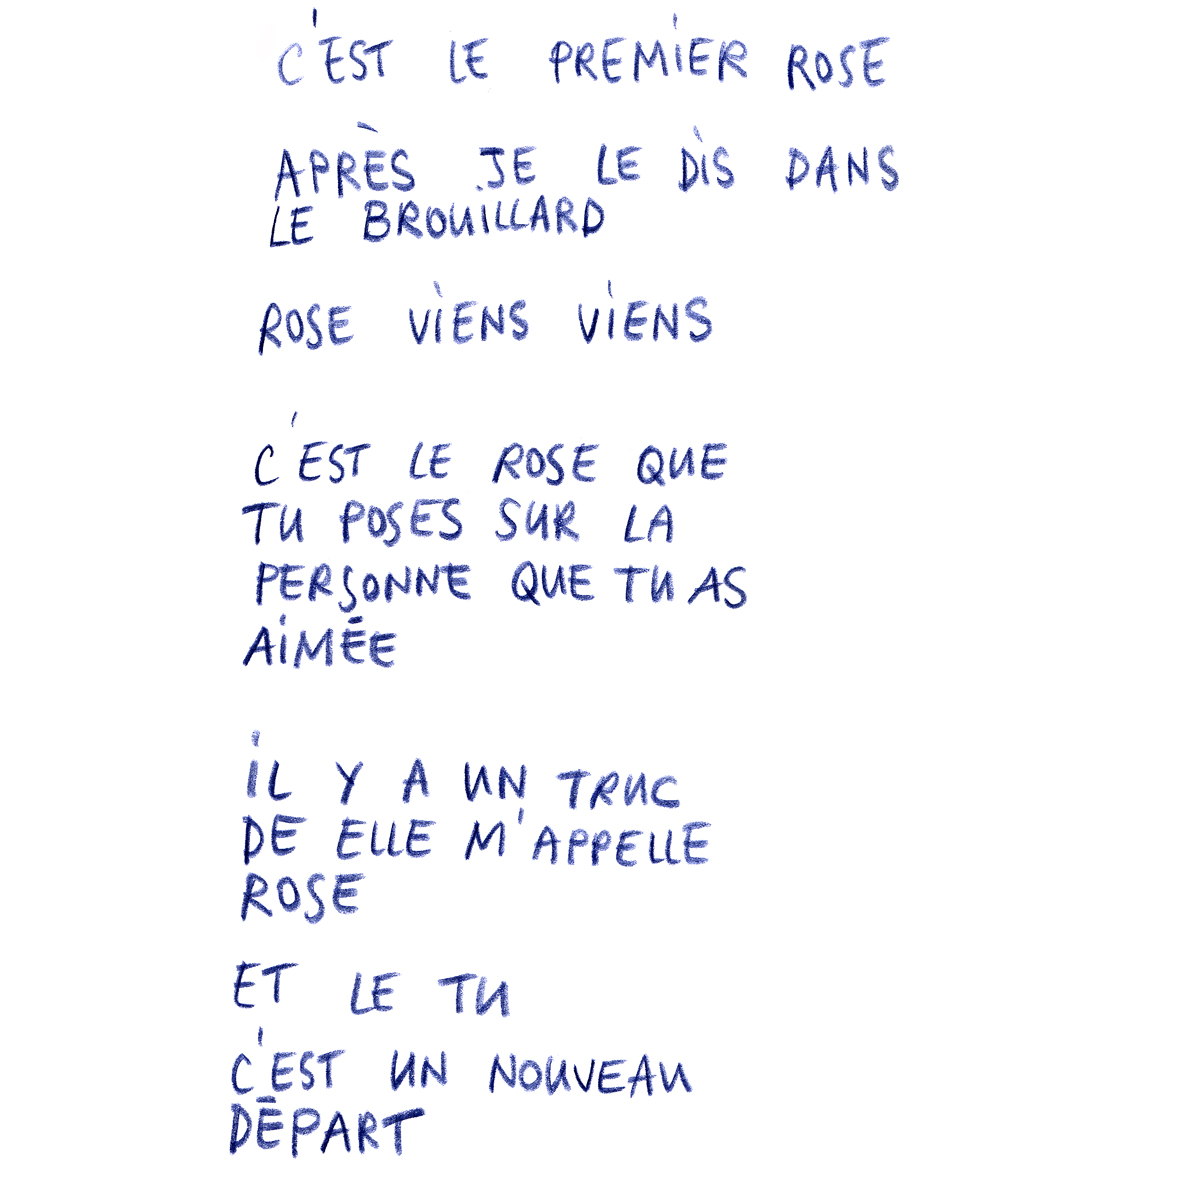 C'EST LE PREMIER ROSE
APRÈS JE LE DIS DANS
LE BROUILLARD
ROSE VIENS VIENS
C'EST LE ROSE QUE
TU POSES SUR LA
PERSONNE QUE TU AS
AIMÉE
IL Y A UN TRUC
DE ELLE M'APPELLE
ROSE
ET LE TU
C'EST UN NOUVEAU
DÉPART